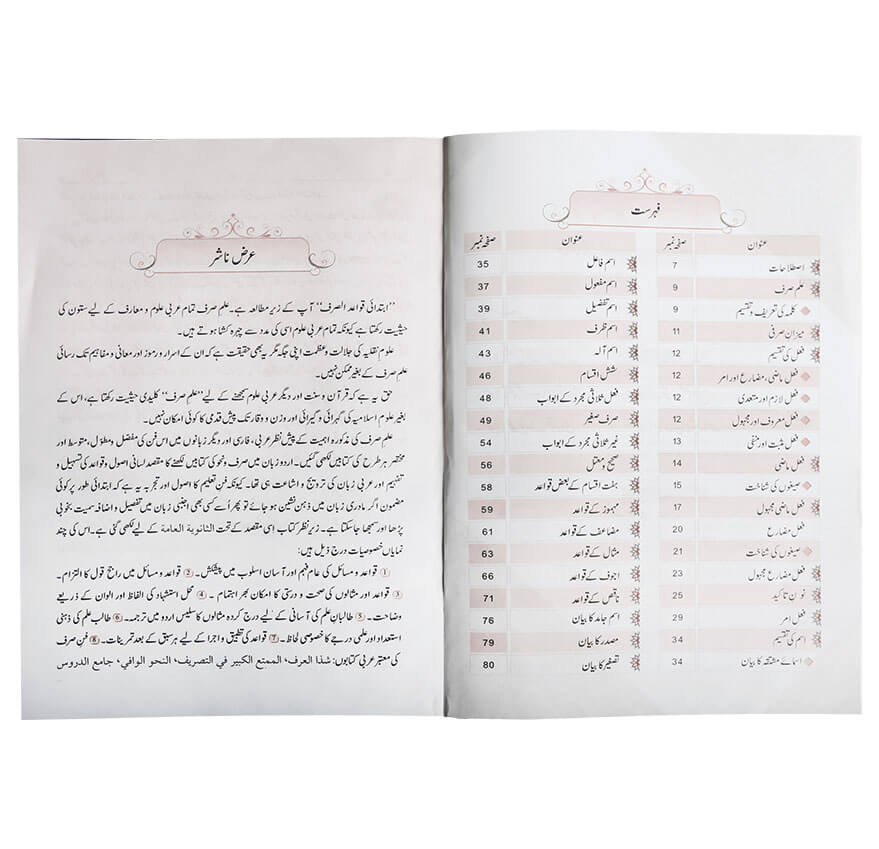 فہرست
عنوان صفحہ نمبر
اصطلاحات 7
علم صرف 9
کلمہ کی تعریف و تقسیم 9
میزان صرفی 11
فعل کی تقسیم 12
فعل ماضی، مضارع اور امر 12
فعل لازم اور متعدی 12
فعل معروف اور مجہول 12
فعل مثبت اور منفی 13
فعل ماضی 14
صیغوں کی شناخت 15
فعل ماضی مجہول 17
فعل مضارع 20
صیغوں کی شناخت 21
فعل مضارع مجہول 23
نون تاکید 25
فعل امر 29
اسم کی تقسیم 34
اسمائے مشتقہ کا بیان 34
عنوان صفحہ نمبر
اسم فاعل 35
اسم مفعول 37
اسم تفضیل 39
اسم ظرف 41
اسم آلہ 43
شش اقسام 46
فعل ثلاثی مجرد کے ابواب 48
صرف صغیر 49
غیر ثلاثی مجرد کے ابواب 54
صحیح و معتل 56
ہفت اقسام کے بعض قواعد 58
مہموز کے قواعد 59
مضاعف کے قواعد 61
مثال کے قواعد 63
اجوف کے قواعد 66
ناقص کے قواعد 71
اسم جامد کا بیان 76
مصدر کا بیان 79
تصغیر کا بیان 80
عرض ناشر
’’ابتدائی قواعد الصرف‘‘ آپ کے زیر مطالعہ ہے۔ علم صرف تمام عربی علوم و معارف کے لیے ستون کی
حیثیت رکھتا ہے کیونکہ تمام عربی علوم اسی کی مدد سے چہرہ کشا ہوتے ہیں۔
علوم نقلیہ کی جلالت و عظمت اپنی جگہ مگر یہ بھی حقیقت ہے کہ ان کے اسرار و رموز اور معانی و مفاہیم تک رسائی
علم صرف کے بغیر ممکن نہیں۔
حق یہ ہے کہ قرآن و سنت اور دیگر عربی علوم سمجھنے کے لیے ’’علم صرف‘‘ کلیدی حیثیت رکھتا ہے، اس کے
بغیر علوم اسلامیہ کی گہرائی و گیرائی اور وزن و وقار تک پیش قدمی کا کوئی امکان نہیں۔
علم صرف کی مذکورہ اہمیت کے پیش نظر عربی، فارسی اور دیگر زبانوں میں اس فن کی مفصل و مطول، متوسط اور
مختصر ہر طرح کی کتابیں لکھی گئیں۔ اردو زبان میں صرف و نحو کی کتابیں لکھنے کا مقصد لسانی اصول و قواعد کی تسہیل و
تفہیم اور عربی زبان کی ترویج و اشاعت ہی تھا۔ کیونکہ فن تعلیم کا اصول اور تجربہ یہ ہے کہ ابتدائی طور پر کوئی
مضمون اگر مادری زبان میں ذہن نشین ہو جائے تو پھر اُسے کسی بھی اجنبی زبان میں تفصیل و اضافہ سمیت بخوبی
پڑھا اور سمجھا جا سکتا ہے۔ زیر نظر کتاب اسی مقصد کے تحت الثانوية العامة کے لیے لکھی گئی ہے۔ اس کی چند
نمایاں خصوصیات درج ذیل ہیں:
① قواعد و مسائل کی عام فہم اور آسان اسلوب میں پیشکش۔ ② قواعد و مسائل میں راجح قول کا التزام۔
③ قواعد اور مثالوں کی صحت و درستی کا امکان بھر اہتمام۔ ④ محل استشہاد کی الفاظ اور الوان کے ذریعے
وضاحت۔ ⑤ طالبان علم کی آسانی کے لیے درج کردہ مثالوں کا سلیس اردو میں ترجمہ۔ ⑥ طالب علم کی ذہنی
استعداد اور علمی درجے کا خصوصی لحاظ۔ ⑦ قواعد کی تطبیق و اجرا کے لیے ہر سبق کے بعد تمرینات۔ ⑧ فن صرف
کی معتبر عربی کتابوں: شذا العرف، الممتع الكبير في التصريف، النحو الوافي، جامع الدروس